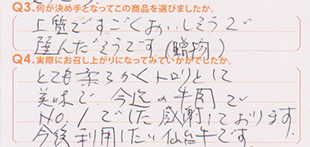 Q3.何が決め手となってこの商品を選びましたか。
上質ですごくおいしそうで
選んだそうです(贈物)
Q4.実際にお召し上がりになってみていかがでしたか。
とても柔らかくトロリとして
美味で今迄の牛肉で
No.1でした感謝しております。
今後利用したい仙台牛です。